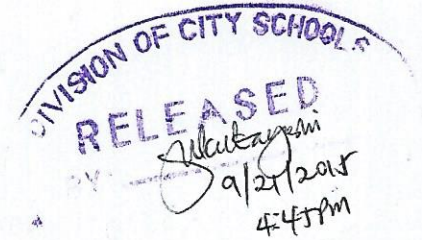 DIVISION OF CITY SCHOOLS
RELEASED
BY:
9/21/2015
4:45PM